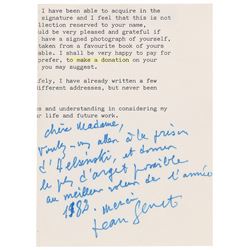 I have been able to acquire in the
signature and I feel that this is not
ollection reserved to your name,
ould be very pleased and grateful if
have a signed photograph of yourself,
taken from a favourite book of yours
able. I shall be very happy to pay for
prefer, to make a donation on your
you may suggest.
fely, I have already written a few
different addresses, but never been
es and understanding in considering my
ur life and future work.
chère Madame,
voulez-vous aller à la prison
d'Helsinski, et donner
le plus d'argent possible
au meilleur voleur de l'année
1982. merci
Jean Genet